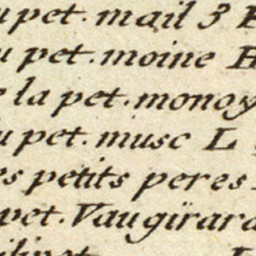 u pet. mail 3
u pet. moine H
e la pet. monoy
u pet. musc L
es petits peres
pet. Vaugirard